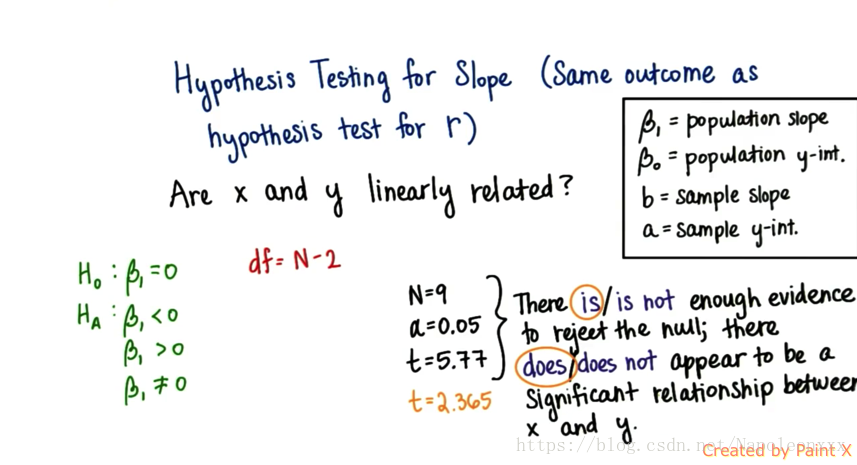 Hypothesis Testing for Slope (Same outcome as
hypothesis test for r)
Are x and y linearly related?
β₁ = population slope
β₀ = population y-int.
b = sample slope
a = sample y-int.
H₀ : β₁ = 0
H_A : β₁ < 0
β₁ > 0
β₁ ≠ 0
df = N-2
N=9
α=0.05
t=5.77
t=2.365
There is/is not enough evidence
to reject the null; there
does/does not appear to be a
significant relationship between
x and y.
https://blog.csdn.net/Napoleonxxx
Created by Paint X